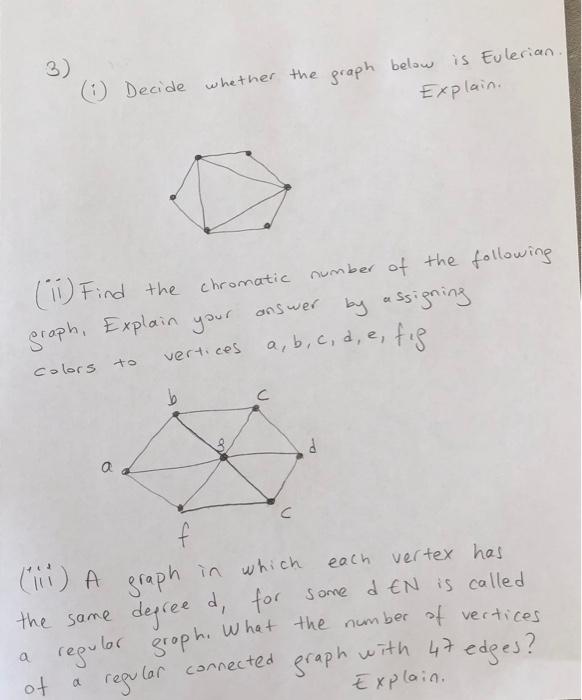 3)
(i) Decide whether the graph below is Eulerian.
Explain.
(ii) Find the chromatic number of the following
graph. Explain your answer by assigning
colors to vertices a, b, c, d, e, f, g
b
c
g
d
a
c
f
(iii) A graph in which each vertex has
the same degree d, for some d ∈ N is called
a regular graph. What the number of vertices
of a regular connected graph with 47 edges?
Explain.